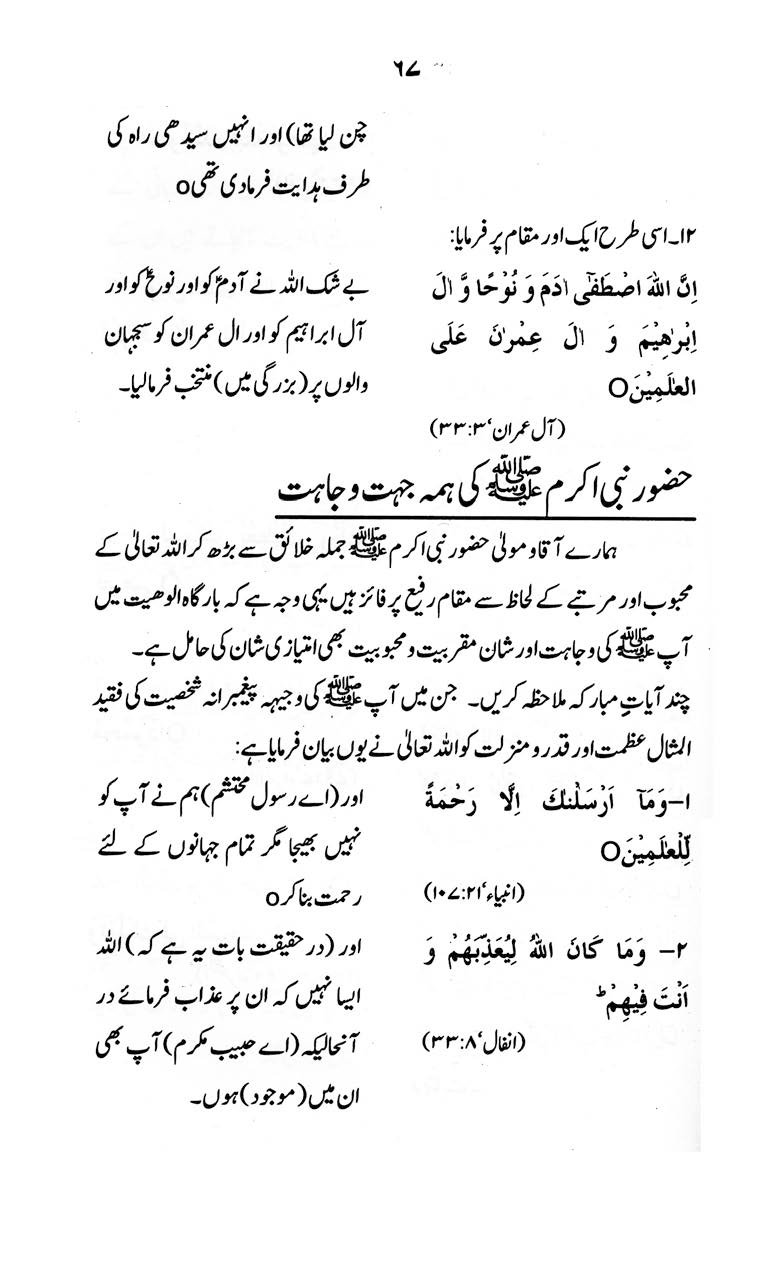 ٦٧
چن لیا تھا) اور انہیں سیدھی راہ کی
طرف ہدایت فرمادی تھیo
١٢۔ اسی طرح ایک اور مقام پر فرمایا:
اِنَّ اللهَ اصْطَفٰۤی اٰدَمَ وَ نُوْحًا وَّ اٰلَ
اِبْرٰهِیْمَ وَ اٰلَ عِمْرٰنَ عَلَی
الْعٰلَمِیْنَO
(آل عمران‘ ٣:٣٣)
بے شک اللہ نے آدمؑ کو اور نوحؑ کو اور
آل ابراہیم کو اور ال عمران کو سجہان
والوں پر (بزرگی میں) منتخب فرمالیا۔
حضور نبی اکرم ﷺ کی ہمہ جہت وجاہت
ہمارے آقاو مولیٰ حضور نبی اکرم ﷺ جملہ خلائق سے بڑھ کر اللہ تعالیٰ کے
محبوب اور مرتبے کے لحاظ سے مقام رفیع پر فائز ہیں یہی وجہ ہے کہ بارگاہ الوھیت میں
آپ ﷺ کی وجاہت اور شان مقربیت و محبوبیت بھی امتیازی شان کی حامل ہے۔
چند آیاتِ مبارکہ ملاحظہ کریں۔ جن میں آپ ﷺ کی وجیہہ پیغمبرانہ شخصیت کی فقید
المثال عظمت اور قدر و منزلت کو اللہ تعالیٰ نے یوں بیان فرمایا ہے:
١–وَمَاۤ اَرْسَلْنٰكَ اِلَّا رَحْمَةً
لِّلْعٰلَمِیْنَO
(انبیاء‘ ٢١:١٠٧)
اور (اے رسول محتشم) ہم نے آپ کو
نہیں بھیجا مگر تمام جہانوں کے لئے
رحمت بنا کرo
٢– وَمَا كَانَ اللهُ لِیُعَذِّبَهُمْ وَ
اَنْتَ فِیْهِمْ ؕ
(انفال‘ ٨:٣٣)
اور (در حقیقت بات یہ ہے کہ) اللہ
ایسا نہیں کہ ان پر عذاب فرمائے در
آنحالیکہ (اے حبیب مکرم) آپ بھی
ان میں (موجود) ہوں۔